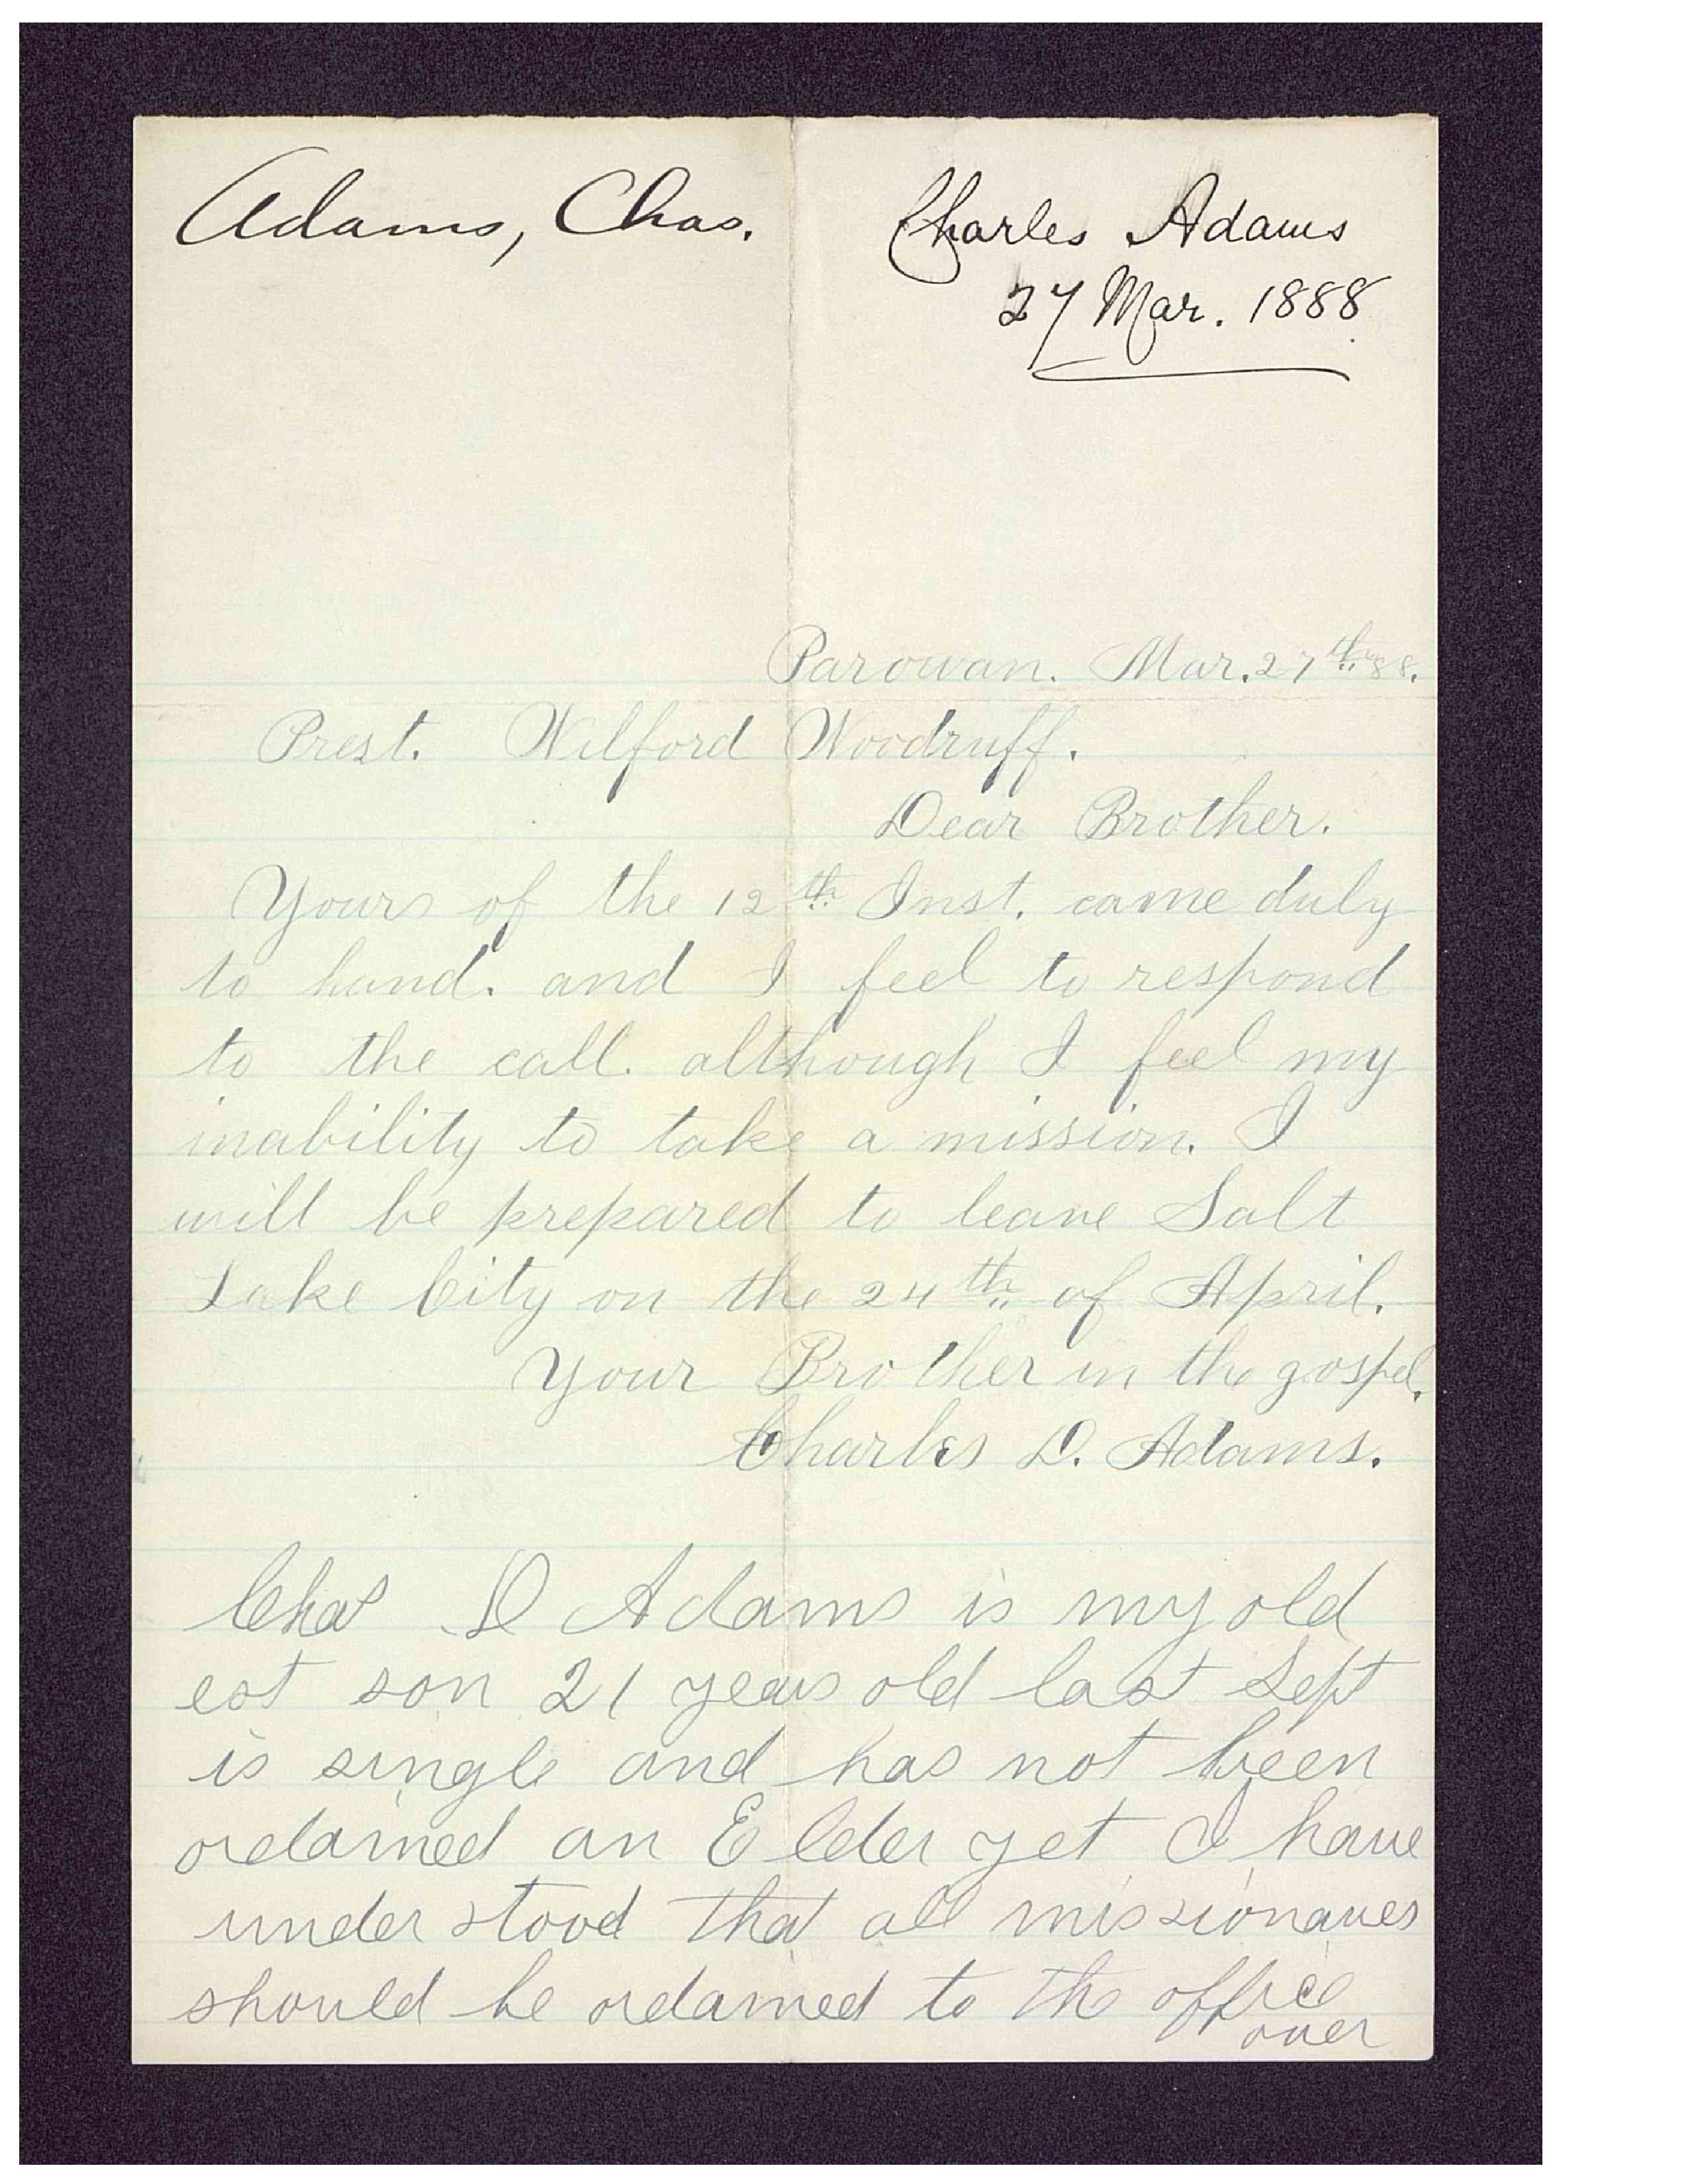 Adams, Chas.
Charles Adams
27 Mar. 1888
Parowan. Mar. 27th 88.
Prest. Wilford Woodruff.
Dear Brother.
Yours of the 12th Inst. came duly
to hand. and I feel to respond
to the call. although I feel my
inability to take a mission. I
will be prepared to leave Salt
Lake City on the 24th of April.
Your Brother in the gospel.
Charles D. Adams.
Chas D Adams is my old
est son 21 years old last Sept
is single and has not been
ordained an Elder yet I have
under stood that all missionaries
should be ordained to the office
over